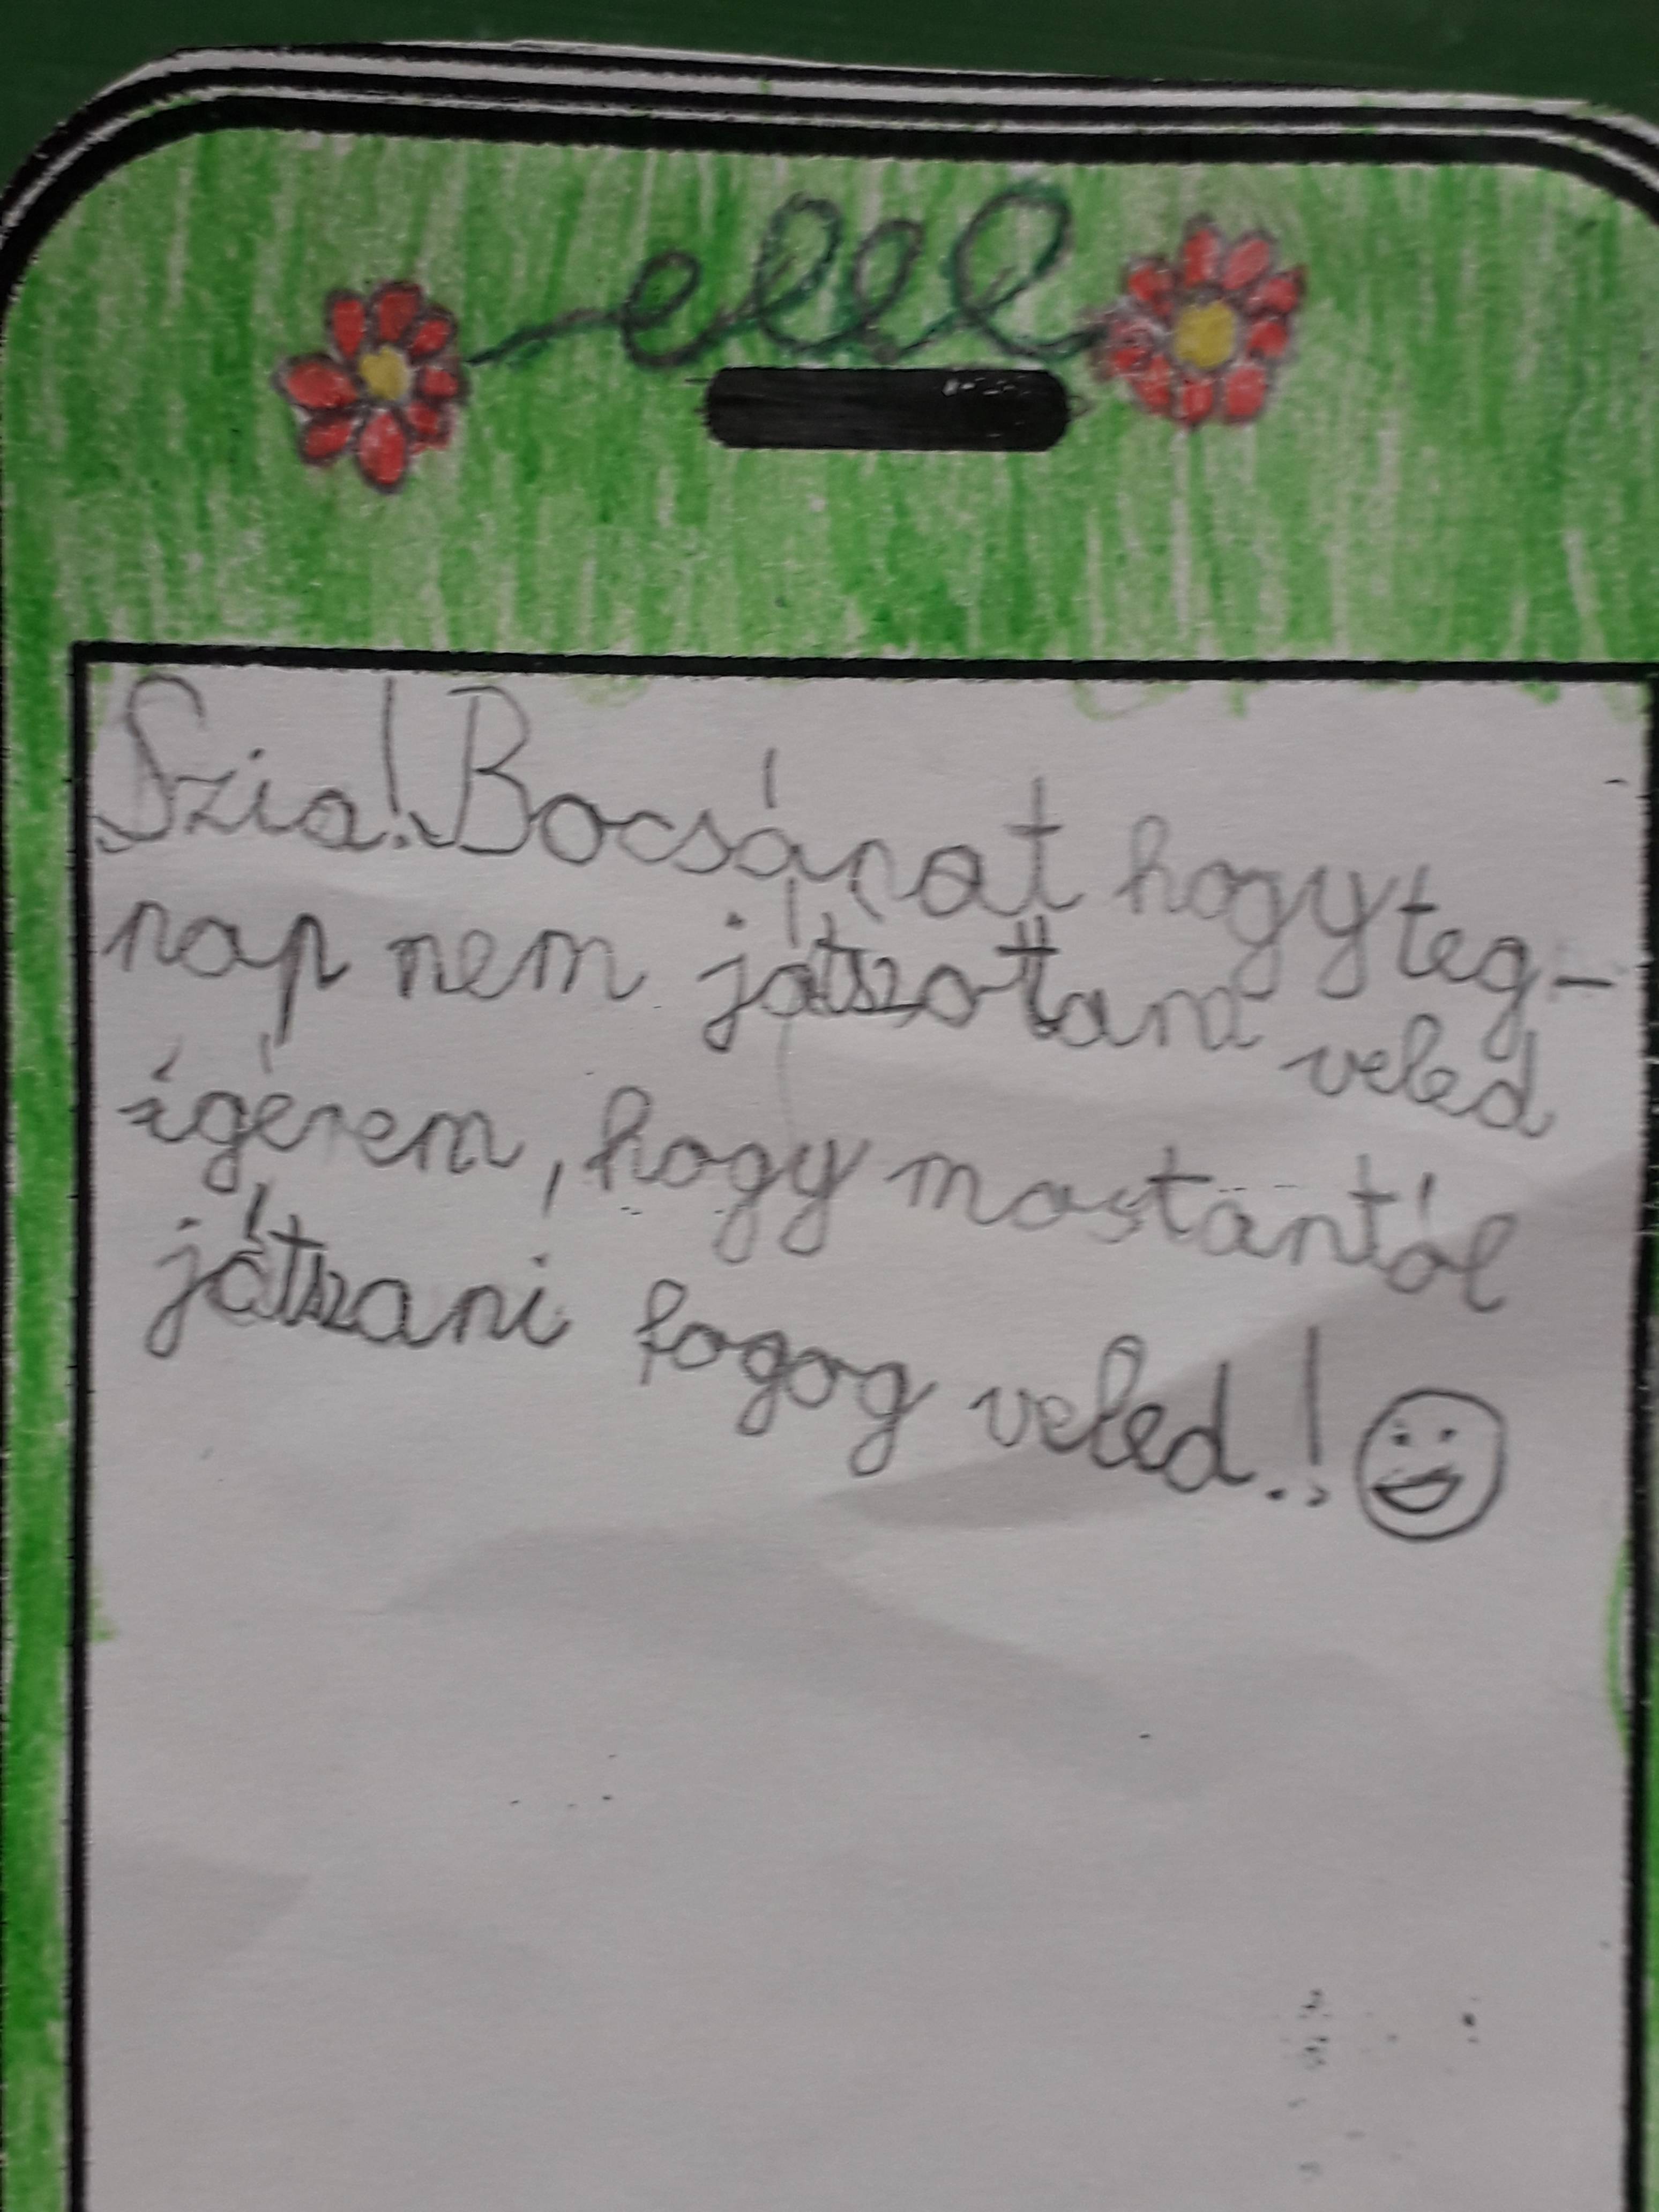 Szia! Bocsánat hogy teg-
nap nem játszottam veled
ígérem, hogy mostantól
játszani fogog veled.!